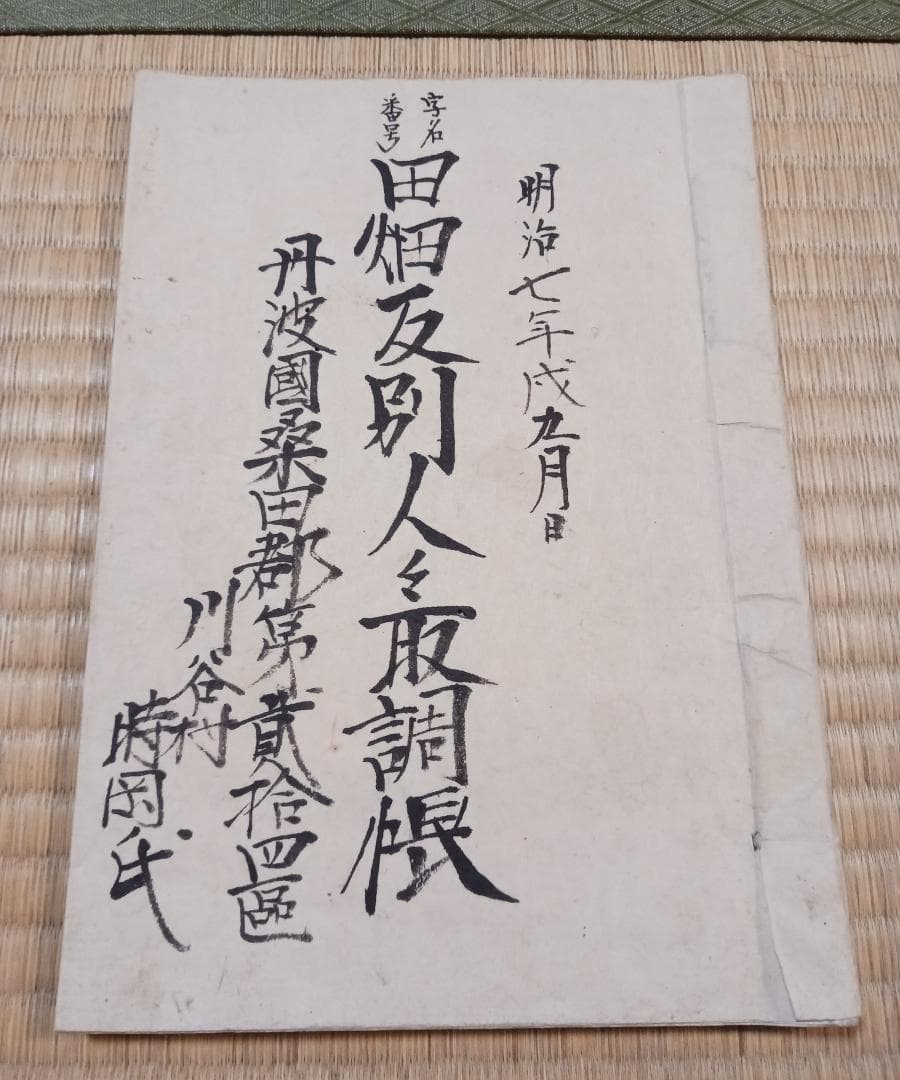 明治七年戌九月日
字名
番号
田畑反別人々取調帳
丹波國桑田郡第貳拾四區
川谷村
時岡氏